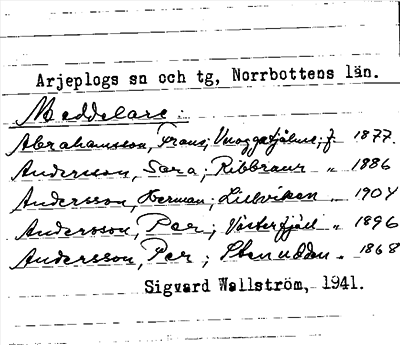 Arjeplogs sn och tg, Norrbottens län.
Meddelare:
Abrahamsson, Frans; Vuoggatjålme, f. 1877.
Andersson, Sara; Ribbraur " 1886
Andersson, Herman; Lillviken " 1904
Andersson, Per; Västerfjäll " 1896
Andersson, Per; Stenudden " 1868
Sigvard Wallström, 1941.